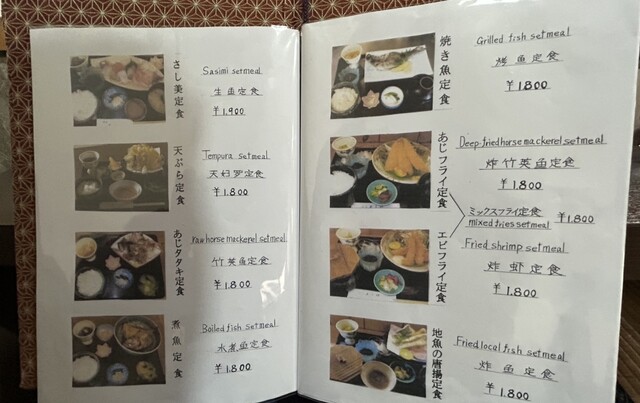 さし美定食
Sasimi setmeal
生魚定食
¥1,900
天ぷら定食
Tempura setmeal
天妇罗定食
¥1.800
あじタタキ定食
raw horse mackerel setmeal
竹英魚定食
¥1.800
煮魚定食
Boiled fish setmeal
水煮魚定食
¥1.800
焼き魚定食
Grilled fish setmeal
烤魚定食
¥1800
あじフライ定食
Deep-fried horse mackerel setmeal
炸竹英魚定食
¥1.800
ミックスフライ定食
mixed fries setmeal
¥1.800
エビフライ定食
Fried shrimp setmeal
炸虾定食
¥1.800
地魚の唐揚定食
Fried local fish setmeal
炸魚定食
¥1.800